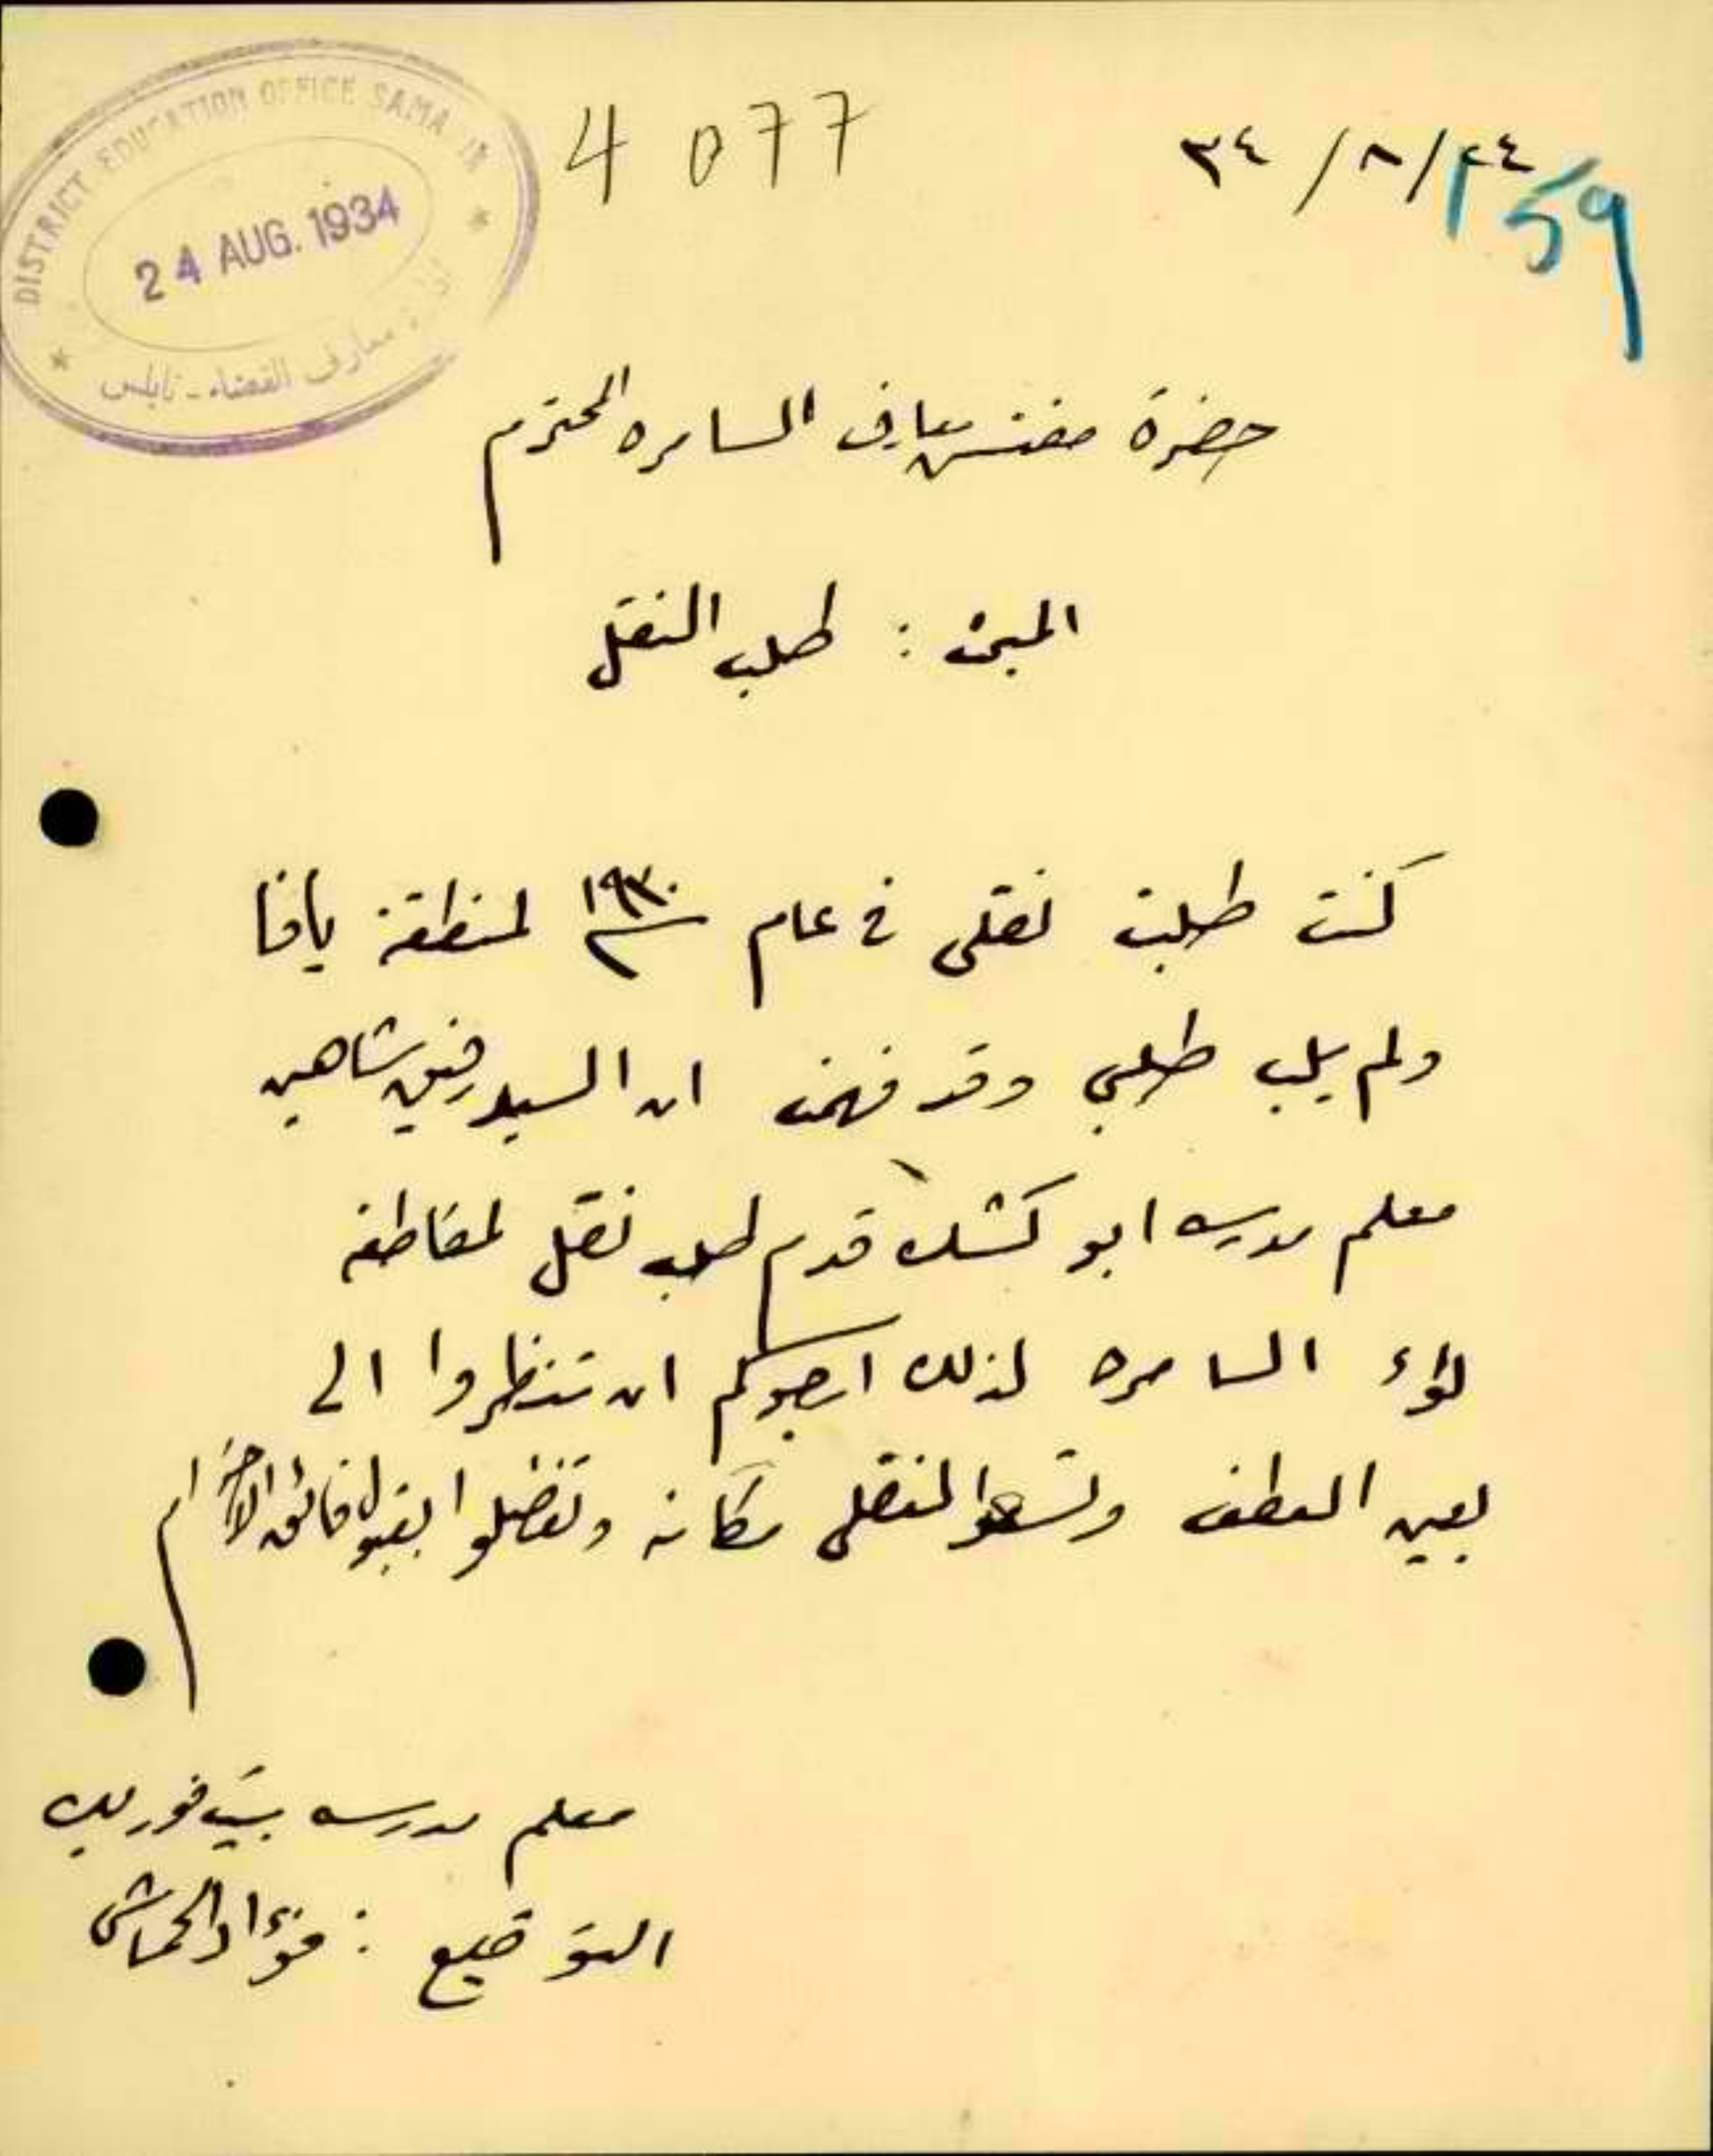 DISTRICT EDUCATION OFFICE SAMARIA
24 AUG. 1934
معارف القضاء - نابلس
4077
٢٤/٨/٣٤
159
حضرة مفتش معارف السامره المحترم
المبحث : طلب النقل
كنت طلبت نقلي في عام ١٩٣٠ لمنطقة يافا
ولم يلب طلبي وقد فهمت ان السيد رفيق شاهين
معلم مدرسه ابو كشك قدم طلب نقل لمقاطعة
لواء السامره لذلك ارجوكم ان تنظروا الى
بعين العطف وتسعوا لنقلي مكانه وتفضلوا بقبول فائق الاحترام
معلم مدرسه بيت فوريك
التوقيع : فؤاد الحماش